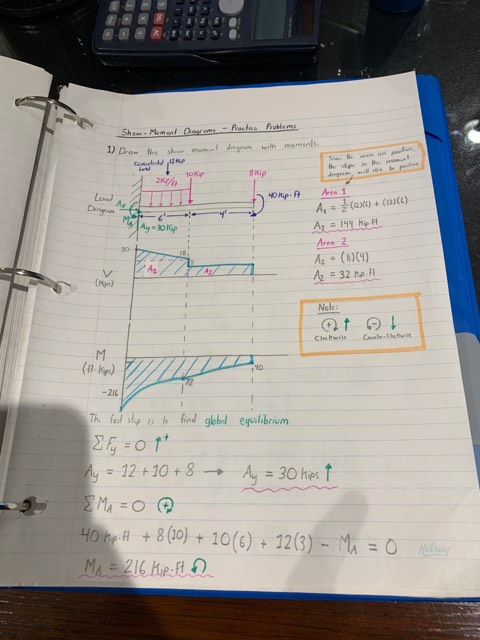 Shear-Moment Diagrams - Practice Problems
1) Draw the shear moment diagram with moments.
Concentrated
Load
12 Kip
2 Kip/ft
10 Kip
8 Kip
40 Kip·ft
Load
Diagram
Ax
MA
Ay = 30 Kip
6'
4'
30
18
V
(Kips)
A1
A2
M
(ft·Kips)
-216
-72
-40
Since the areas are positive,
the slope in the moment
diagram will also be positive
Area 1
A1 = 1/2 (12)(6) + (18)(6)
A1 = 144 Kip·ft
Area 2
A2 = (8)(4)
A2 = 32 Kip·ft
Note:
(+) ↑ (-) ↓
Clockwise Counter-Clockwise
The first step is to find global equilibrium
ΣFy = 0 ↑+
Ay = 12 + 10 + 8 → Ay = 30 kips ↑
ΣMA = 0 (+)
40 Kip·ft + 8(10) + 10(6) + 12(3) - MA = 0
MA = 216 Kip·ft